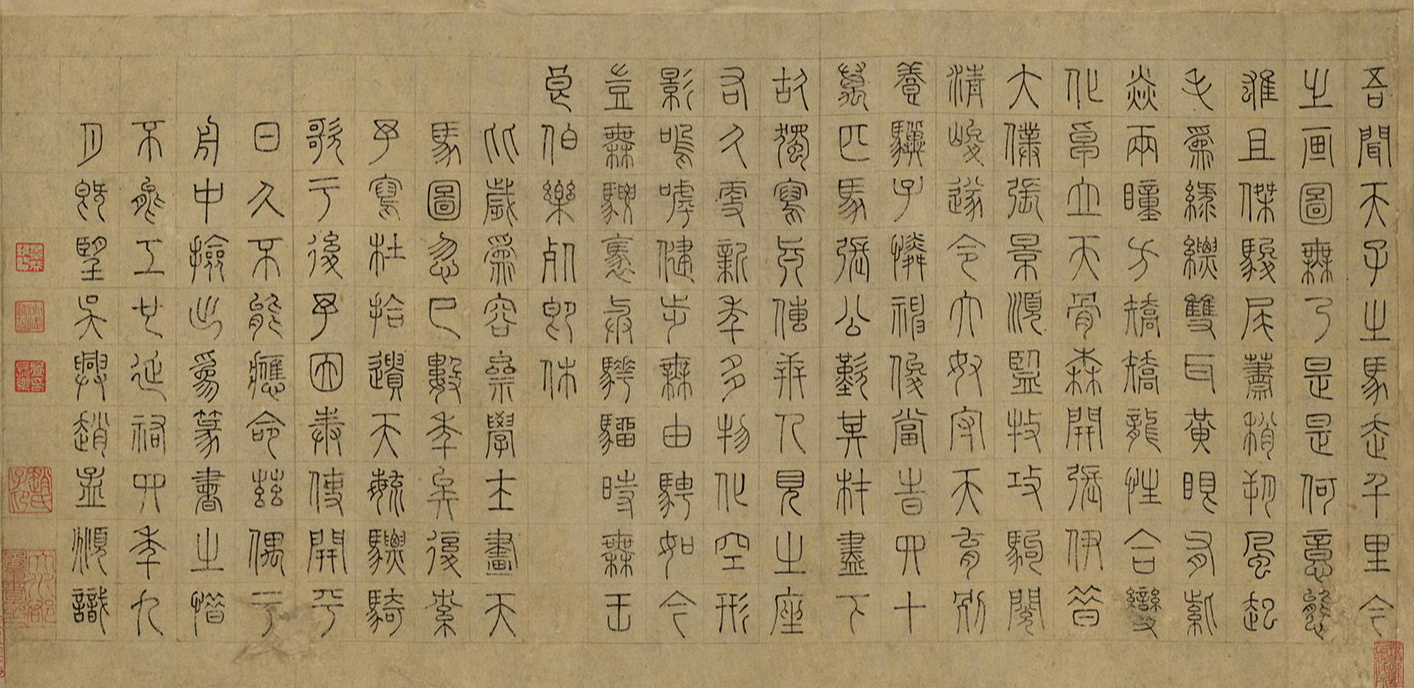 吾聞天子之馬走千里今
之画圖無乃是是何意態
雄且傑駿尾蕭梢朔風起
毛爲綠縹雙耳黃眼有紫
焱兩瞳方矯矯龍性合變
化卓立天骨森開張伊昔
大僕張景順監牧攻駒閱
清峻遂令大奴守天育別
養驥子憐神俊當昔四十
萬匹馬張公歎其材盡下
故獨寫真傳世人見之座
右久更新年多物化空形
影嗚呼健步無由騁如今
豈無騕褭與驊騮時無王
良伯樂死即休
比歲爲容學士畫天
馬圖忽已數年矣復索
予寫杜拾遺天毓驃騎
歌于後予因開平
日久不能應命茲偶于
舟中撿出爲篆書之惜
不能工也延祐四年九
月既望吳興趙孟頫識